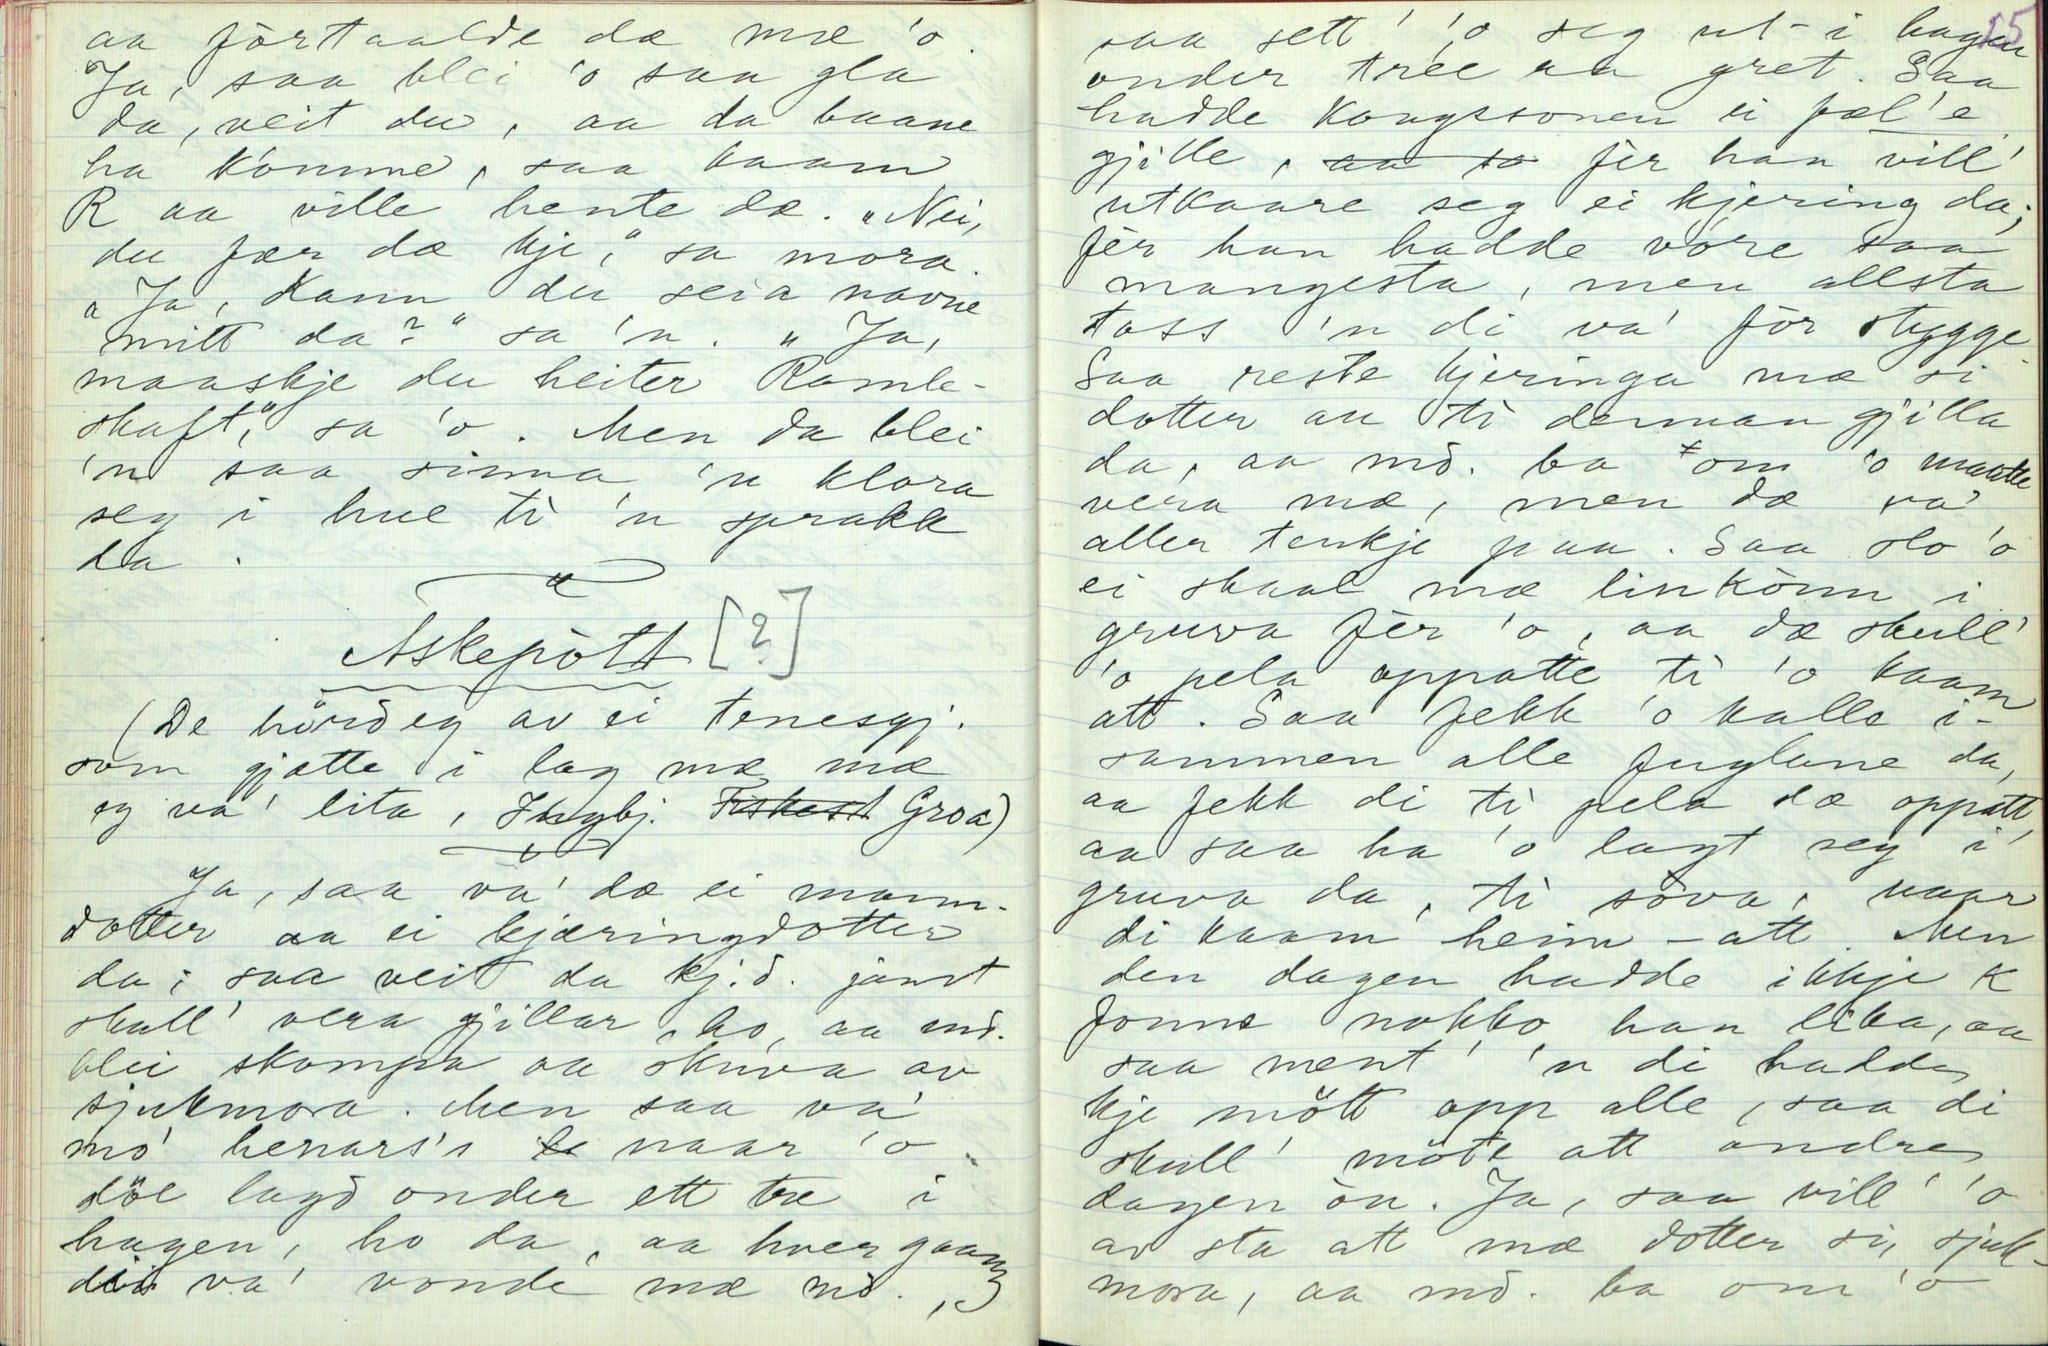 aa förtaalde dæ mæ 'o.
Ja, saa blei 'o saa gla
da, veit du, aa da baane
ha kömme, saa kaam
R aa ville hente dæ. „Nei,
du fær dæ kje," sa mora.
„Ja, kann du seia navne
mitt da?" sa 'n. „Ja,
maaskje du heiter Ramle-
skaft," sa 'o. Men da blei
'n saa sinna 'n klora
seg i hue ti 'n sprakk
da.
Askepòtt [?]
(De hörd eg av ei tenesgj.
som gjætte i lag mæ mæ
eg va' lita, Ingbj. Groa)
Ja, saa va' dæ ei mann-
dotter aa ei kjæringdotter
da; saa veit du kj.d. jamt
skull' vera gjillar, ho, aa md.
blei skompa aa skuva av
sjukmora. Men saa va'
mo' henars's naar 'o
döe lagd onder ett tre i
hagen, ho da, aa hver gaang
di va' vonde mæ md.,
15
saa sett' 'o seg ut- i hagen
onder tree aa gret. Saa
hadde Kongssonen ei fæl'e
gjille, aa sa fèr han vill'
utkaare seg ei kjering da;
fèr han hadde vöre saa
mangesta, men allsta
toss 'n di va' för stygge.
Saa reste kjeringa mæ si
dotter au ti denнan gjilla
da, aa md. ba om 'o maatte
vera mæ, men dæ va'
aller tenkje paa. Saa slo 'o
ei skaal mæ linkönn i
gruva fèr 'o, aa dæ skull'
'o pela oppatte ti 'o kaam
att. Saa fekk 'o kalle i-
sammen alle fuglane da,
aa fekk di ti pela dæ oppatt,
aa saa ha 'o lagt seg i
gruva da, ti söva, naar
di kaam heim-att. Men
den dagen hadde ikkje K
fonne nokko han lika, aa
saa ment' 'n di hadde
kje mött opp alle, saa di
skull' möte att andre
dagen òn. Ja, saa vill' 'o
av sta att mæ dotter si, sjuk-
mora, aa md. ba om 'o